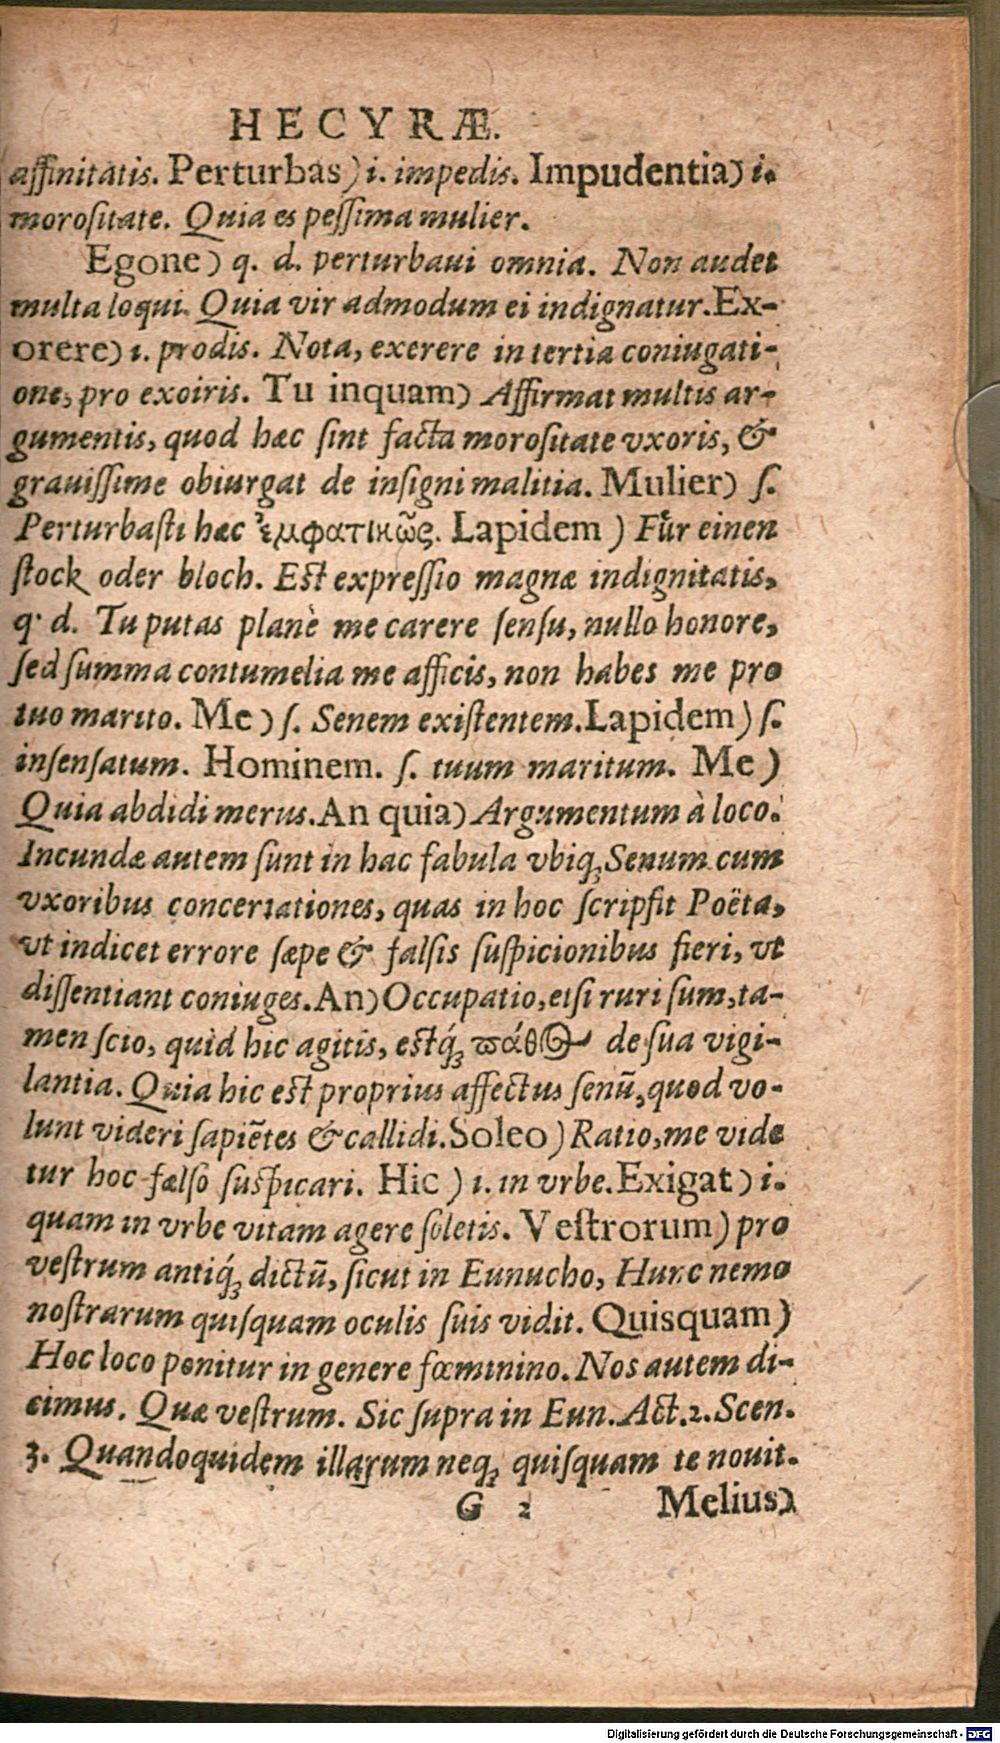 HECYRÆ.
affinitatis. Perturbas) i. impedis. Impudentia) i.
moroſitate. Quia es peſſima mulier.
Egone) q. d. perturbaui omnia. Non audet
multa loqui. Quia vir admodum ei indignatur. Ex-
orere) i. prodis. Nota, exerere in tertia coniugati-
one, pro exoiris. Tu inquam) Affirmat multis ar-
gumentis, quod hæc ſint facta moroſitate vxoris, &
grauiſſime obiurgat de inſigni malitia. Mulier) ſ.
Perturbaſti hæc ἐμφατικῶς. Lapidem) Fuͤr einen
ſtock oder bloch. Eſt expreſſio magnæ indignitatis,
q. d. Tu putas planè me carere ſenſu, nullo honore,
ſed ſumma contumelia me afficis, non habes me pro
tuo marito. Me) ſ. Senem exiſtentem. Lapidem) ſ.
inſenſatum. Hominem. ſ. tuum maritum. Me)
Quia abdidi merus. An quia) Argumentum à loco.
Incundæ autem ſunt in hac fabula vbiq; Senum cum
vxoribus concertationes, quas in hoc ſcripſit Poëta,
vt indicet errore ſæpe & falſis ſuſpicionibus fieri, vt
diſſentiant coniuges. An) Occupatio, etſi ruri ſum, ta-
men ſcio, quid hic agitis, eſtq́; πάθος de ſua vigi-
lantia. Quia hic eſt proprius affectus ſenū, quod vo-
lunt videri ſapiẽtes & callidi. Soleo) Ratio, me vide
tur hoc falſo ſuſpicari. Hic) i. in vrbe. Exigat) i.
quam in vrbe vitam agere ſoletis. Veſtrorum) pro
veſtrum antiq́; dictū, ſicut in Eunucho, Hunc nemo
noſtrarum quiſquam oculis ſuis vidit. Quisquam)
Hoc loco ponitur in genere fœminino. Nos autem di-
cimus. Quæ veſtrum. Sic ſupra in Eun. Act. 2. Scen.
3. Quandoquidem illarum neq; quiſquam te nouit.
G 2 Melius)
Digitalisierung gefördert durch die Deutsche Forschungsgemeinschaft - DFG